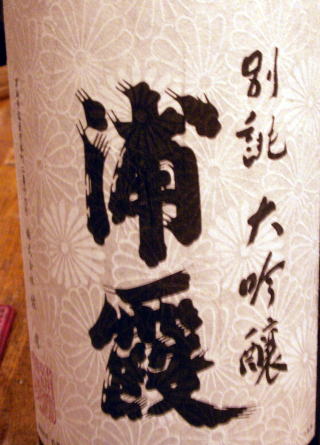 別誂 大吟醸
浦霞